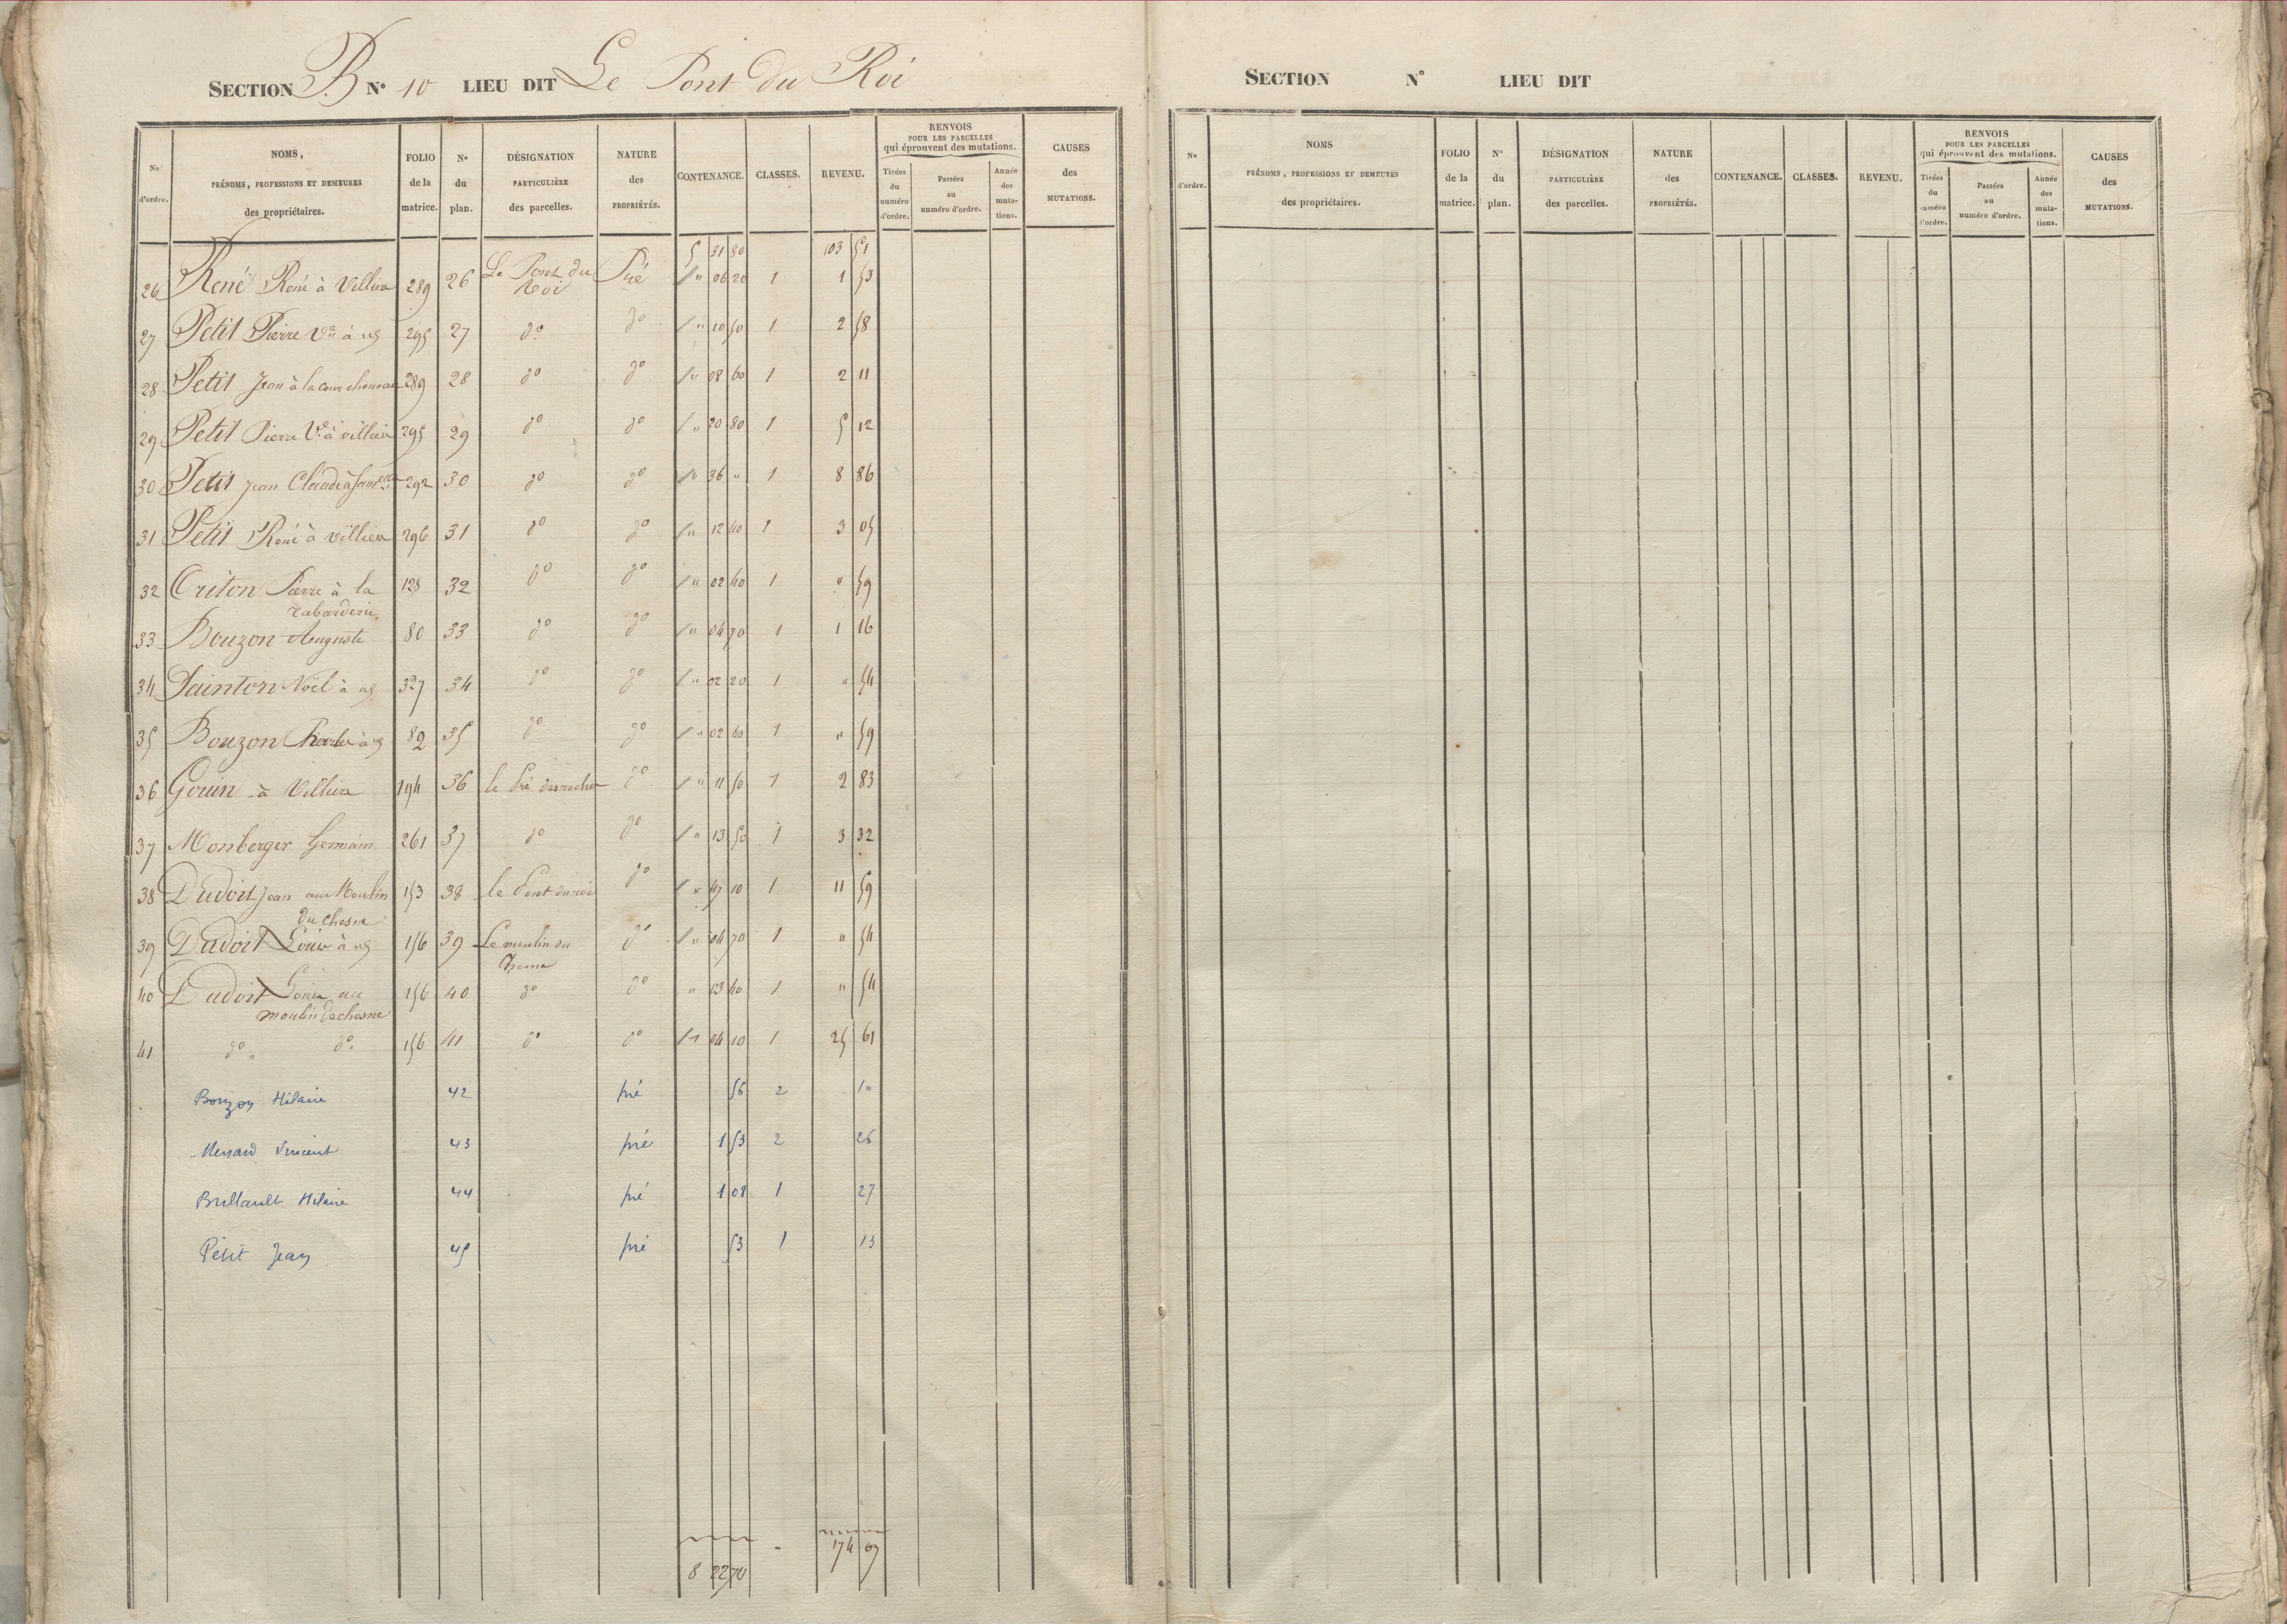 SECTION B N° 10 LIEU DIT Le Pont du Roi
No d'ordre. NOMS, PRÉNOMS, PROFESSIONS ET DEMEURES des propriétaires. FOLIO de la matrice. N° du plan. DÉSIGNATION PARTICULIÈRE des parcelles. NATURE des PROPRIÉTÉS. CONTENANCE. CLASSES. REVENU. RENVOIS POUR LES PARCELLES qui éprouvent des mutations. Tirées du numéro d'ordre. Passées au numéro d'ordre. Année des mutations. CAUSES des MUTATIONS.
5 31 80 103 51
26 René René à Villiers 289 26 Le Pont du Roi Pré " 06 20 1 1 53
27 Petit Pierre Ve à 295 27 do do " 10 50 1 2 58
28 Petit Jean à la cour 289 28 do do " 08 60 1 2 11
29 Petit Pierre Ve à villiers 295 29 do do " 20 80 1 5 12
30 Petit Jean Claude 292 30 do do " 36 " 1 8 86
31 Petit René à villiers 296 31 do do " 12 40 1 3 05
32 Criton Pierre à la 128 32 do do " 02 40 1 " 59
Tabarderie
33 Bouzon Auguste 80 33 do do " 04 70 1 1 16
34 Sainton Noël à 327 34 do do " 02 20 1 " 54
35 Bouzon Charles à 82 35 do do " 02 40 1 " 59
36 Gouin à Villiers 194 36 le Pré desroches do " 11 50 1 2 83
37 Monberger Germain 261 37 do do " 13 50 1 3 32
38 Dudoit Jean au Moulin 153 38 le Pont du roi do " 47 10 1 11 59
du Chesne
39 Dudoit Louis à 156 39 Le moulin du do " 04 70 1 " 54
Chesne
40 Dudoit Louis au 156 40 do do " 03 40 1 " 54
moulin du chesne
41 do do 156 41 do do 1 04 10 1 25 61
Bouzon Hilaire 42 pré 56 2 10
Menard Vincent 43 pré 1 53 2 26
Brillault Hilaire 44 pré 1 08 1 27
Petit Jean 45 pré 53 1 13
174 07
8 22 70
SECTION N° LIEU DIT
N° d'ordre. NOMS PRÉNOMS, PROFESSIONS ET DEMEURES des propriétaires. FOLIO de la matrice. N° du plan. DÉSIGNATION PARTICULIÈRE des parcelles. NATURE des PROPRIÉTÉS. CONTENANCE. CLASSES. REVENU. RENVOIS POUR LES PARCELLES qui éprouvent des mutations. Tirées du numéro d'ordre. Passées au numéro d'ordre. Année des mutations. CAUSES des MUTATIONS.